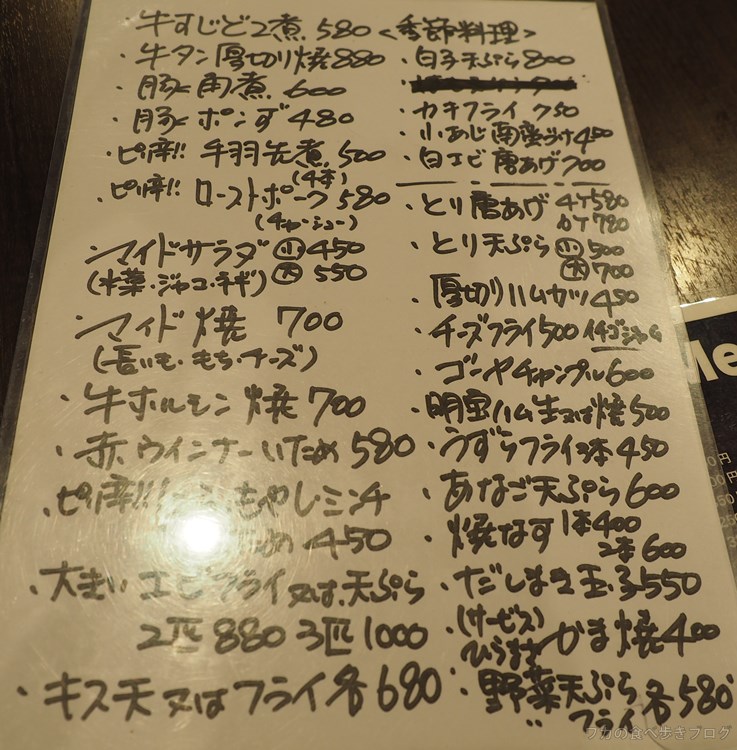 ・牛すじどて煮 580
・牛タン厚切り焼 880
・豚角煮 600
・豚ポンず 480
・ピリ辛!! 手羽先煮 500
(4本)
・ピリ辛!! ローストポーク 580
(チャーシュー)
マイドサラダ ㊤小 450
(水菜・ジャコ・ネギ) 大 550
・マイド焼 700
(長いも・もち・チーズ)
・牛ホルモン焼 700
・赤ウインナーいため 580
・ピリ辛!! もやしミンチ
いため 450
・大きいエビフライ又は天ぷら
2匹 880 3匹 1000
・キス天又はフライ各 680
<季節料理>
・白子天ぷら 800
・カキフライ 750
・小あじ南蛮づけ 450
・白エビ唐あげ 700
・とり唐あげ 4ケ 580
6ケ 780
・とり天ぷら 小 500
大 700
・厚切りハムカツ 450
・チーズフライ 500 イチゴジャム
・ゴーヤチャンプル 600
・明宝ハム生又は焼 500
・うずらフライ3本 450
・あなご天ぷら 600
・焼なす 1本 400
2本 600
・だしまき玉子 550
・(サービス)
ひらまさ かま焼 400
・野菜天ぷら 各 580
〃 フライ
Me
フカの食べ歩きブログ